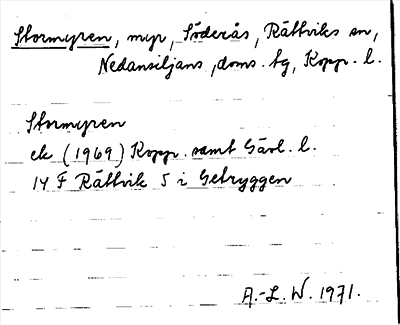 Stormyren, myr, Söderås, Rättviks sn,
Nedansiljans doms. tg, Kopp. l.
Stormyren
ek (1969) Kopp. samt Gävl. l.
14 F Rättvik S i Getryggen
A.-L. W. 1971.